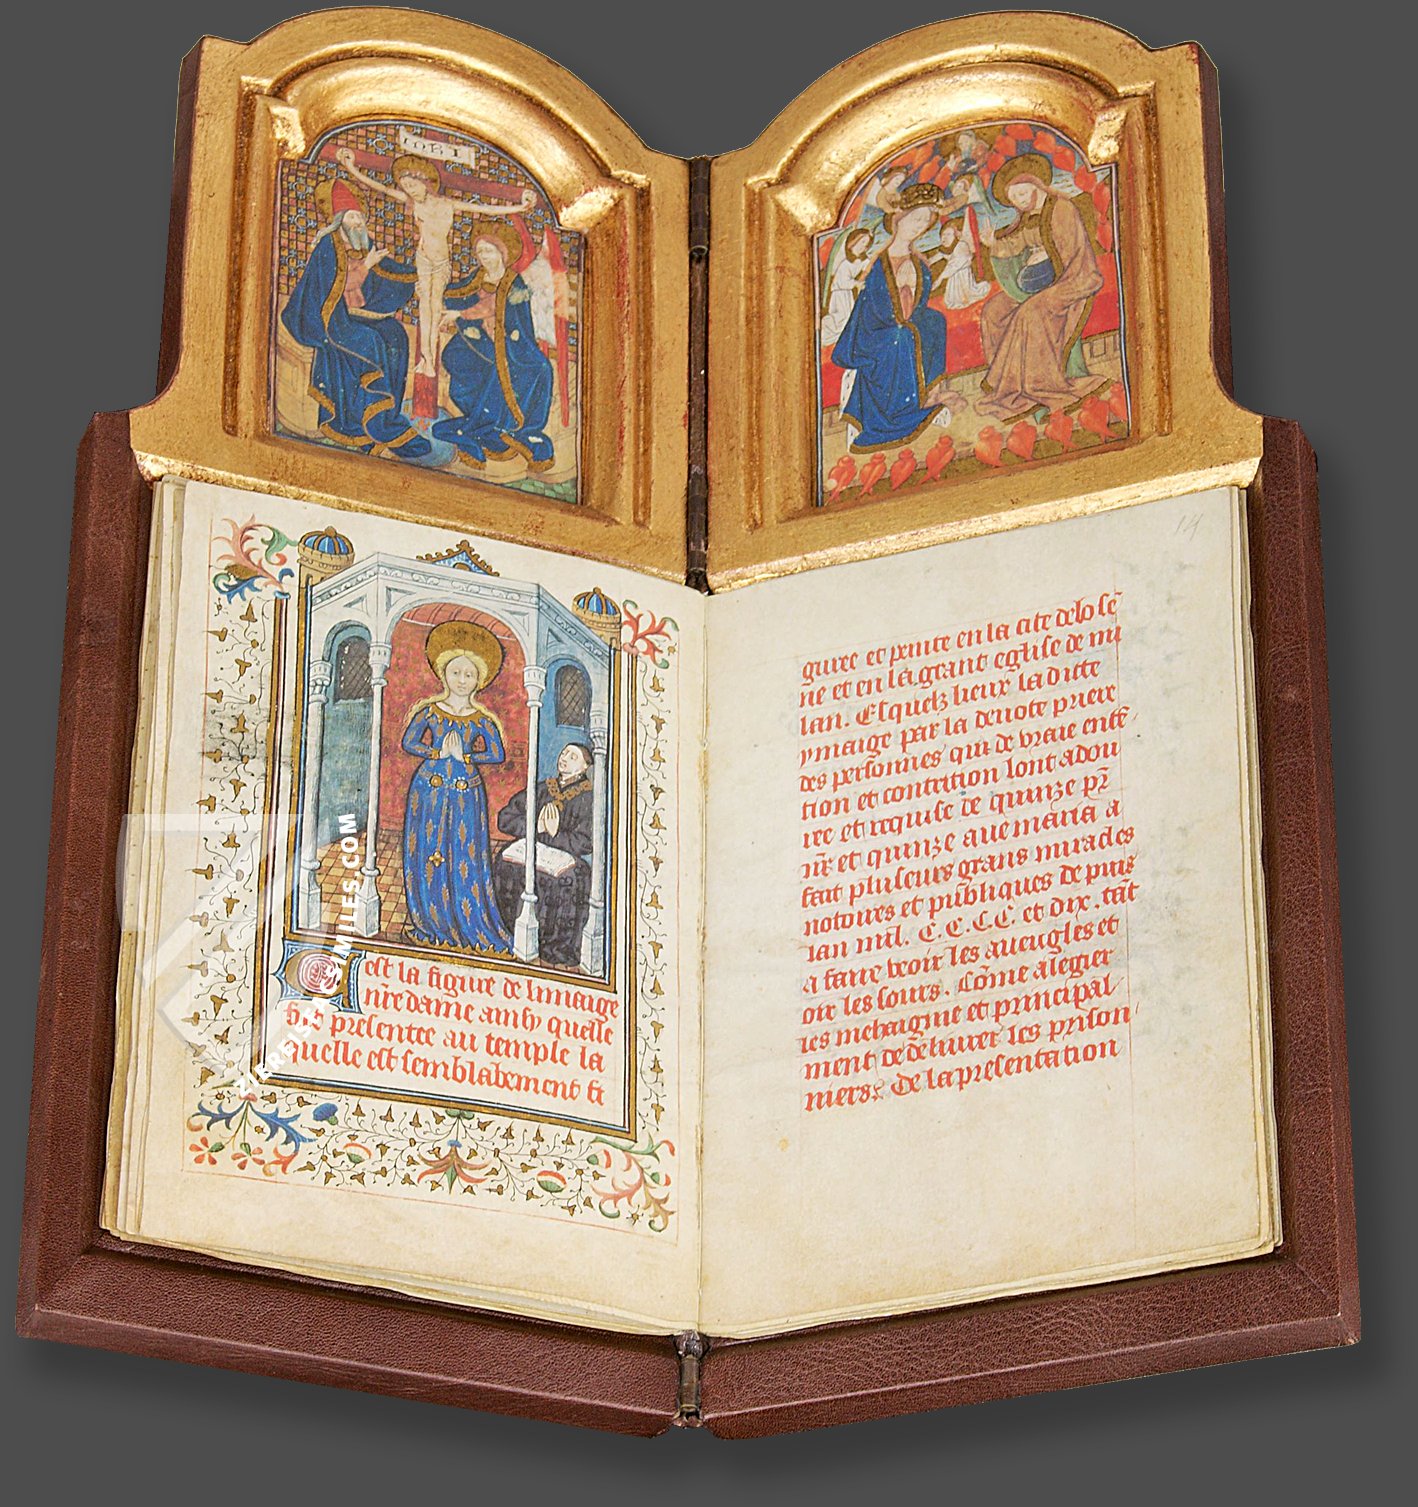 INRI
est la figure de limaige
nr̃e dame ainsy quãlt
fut presentee au temple la
quelle est semblablement fi
14
guree et peinte en la cite de bosẽ
ne et en la grant eglise de mi
lan. Esquelz lieux la dicte
ymaige par la deuote priere
des personnes qui de vraie entẽ
tion et contrition lont adou
ree et requise de quinze pr̃
nr̃ et quinze aue maria a
fait pluseurs grans miracles
notoires et publiques de puis
lan mil. C.C.C.C et dix. tãt
a faire veoir les aueugles et
oir les sours. Cõme alegier
les mehaignie et principal
ment de deliurer les prison
niers. De la presentation
ZIEREIS FACSIMILES.COM